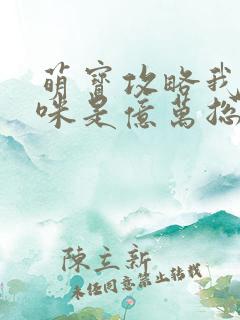 萌寶攻略我
咪是億萬總
陳立新
未經同意禁止轉載